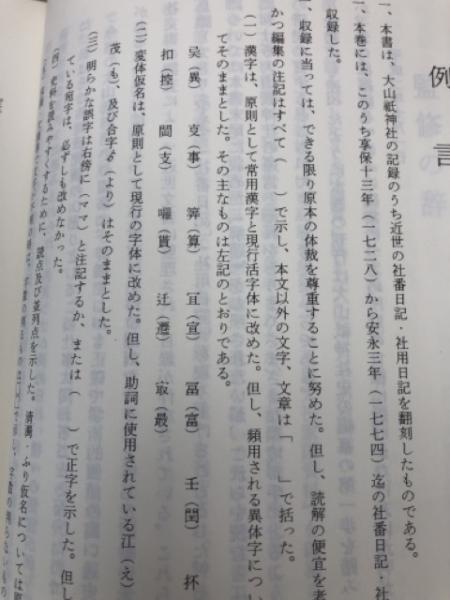 例言
一、本書は、大山祇神社の記録のうち近世の社番日記・社用日記を翻刻したものである。
一、本巻には、このうち享保十三年（一七二八）から安永三年（一七七四）迄の社番日記・社
収録した。
、収録に当っては、できる限り原本の体裁を尊重することに努めた。但し、読解の便宜を考
かつ編集の注記はすべて（　）で示し、本文以外の文字、文章は「　」で括った。
（一）漢字は、原則として常用漢字と現行活字体に改めた。但し、頻用される異体字につい
てそのままとした。その主なものは左記のとおりである。
（異）　（事）　（算）　（宜）　冨（富）　（閏）
（控）　（支）　（貰）　（遷）　（最）
（二）変体仮名は、原則として現行の字体に改めた。但し、助詞に使用されている江（え）
茂（も）、及び合字ゟ（より）はそのままとした。
（三）明らかな誤字は右傍に（ママ）と注記するか、または（　）で正字を示した。但し
ている宛字は、必ずしも改めなかった。
（四）史料を読みやすくするために、読点及び並列点を示した。清濁・ふり仮名については原